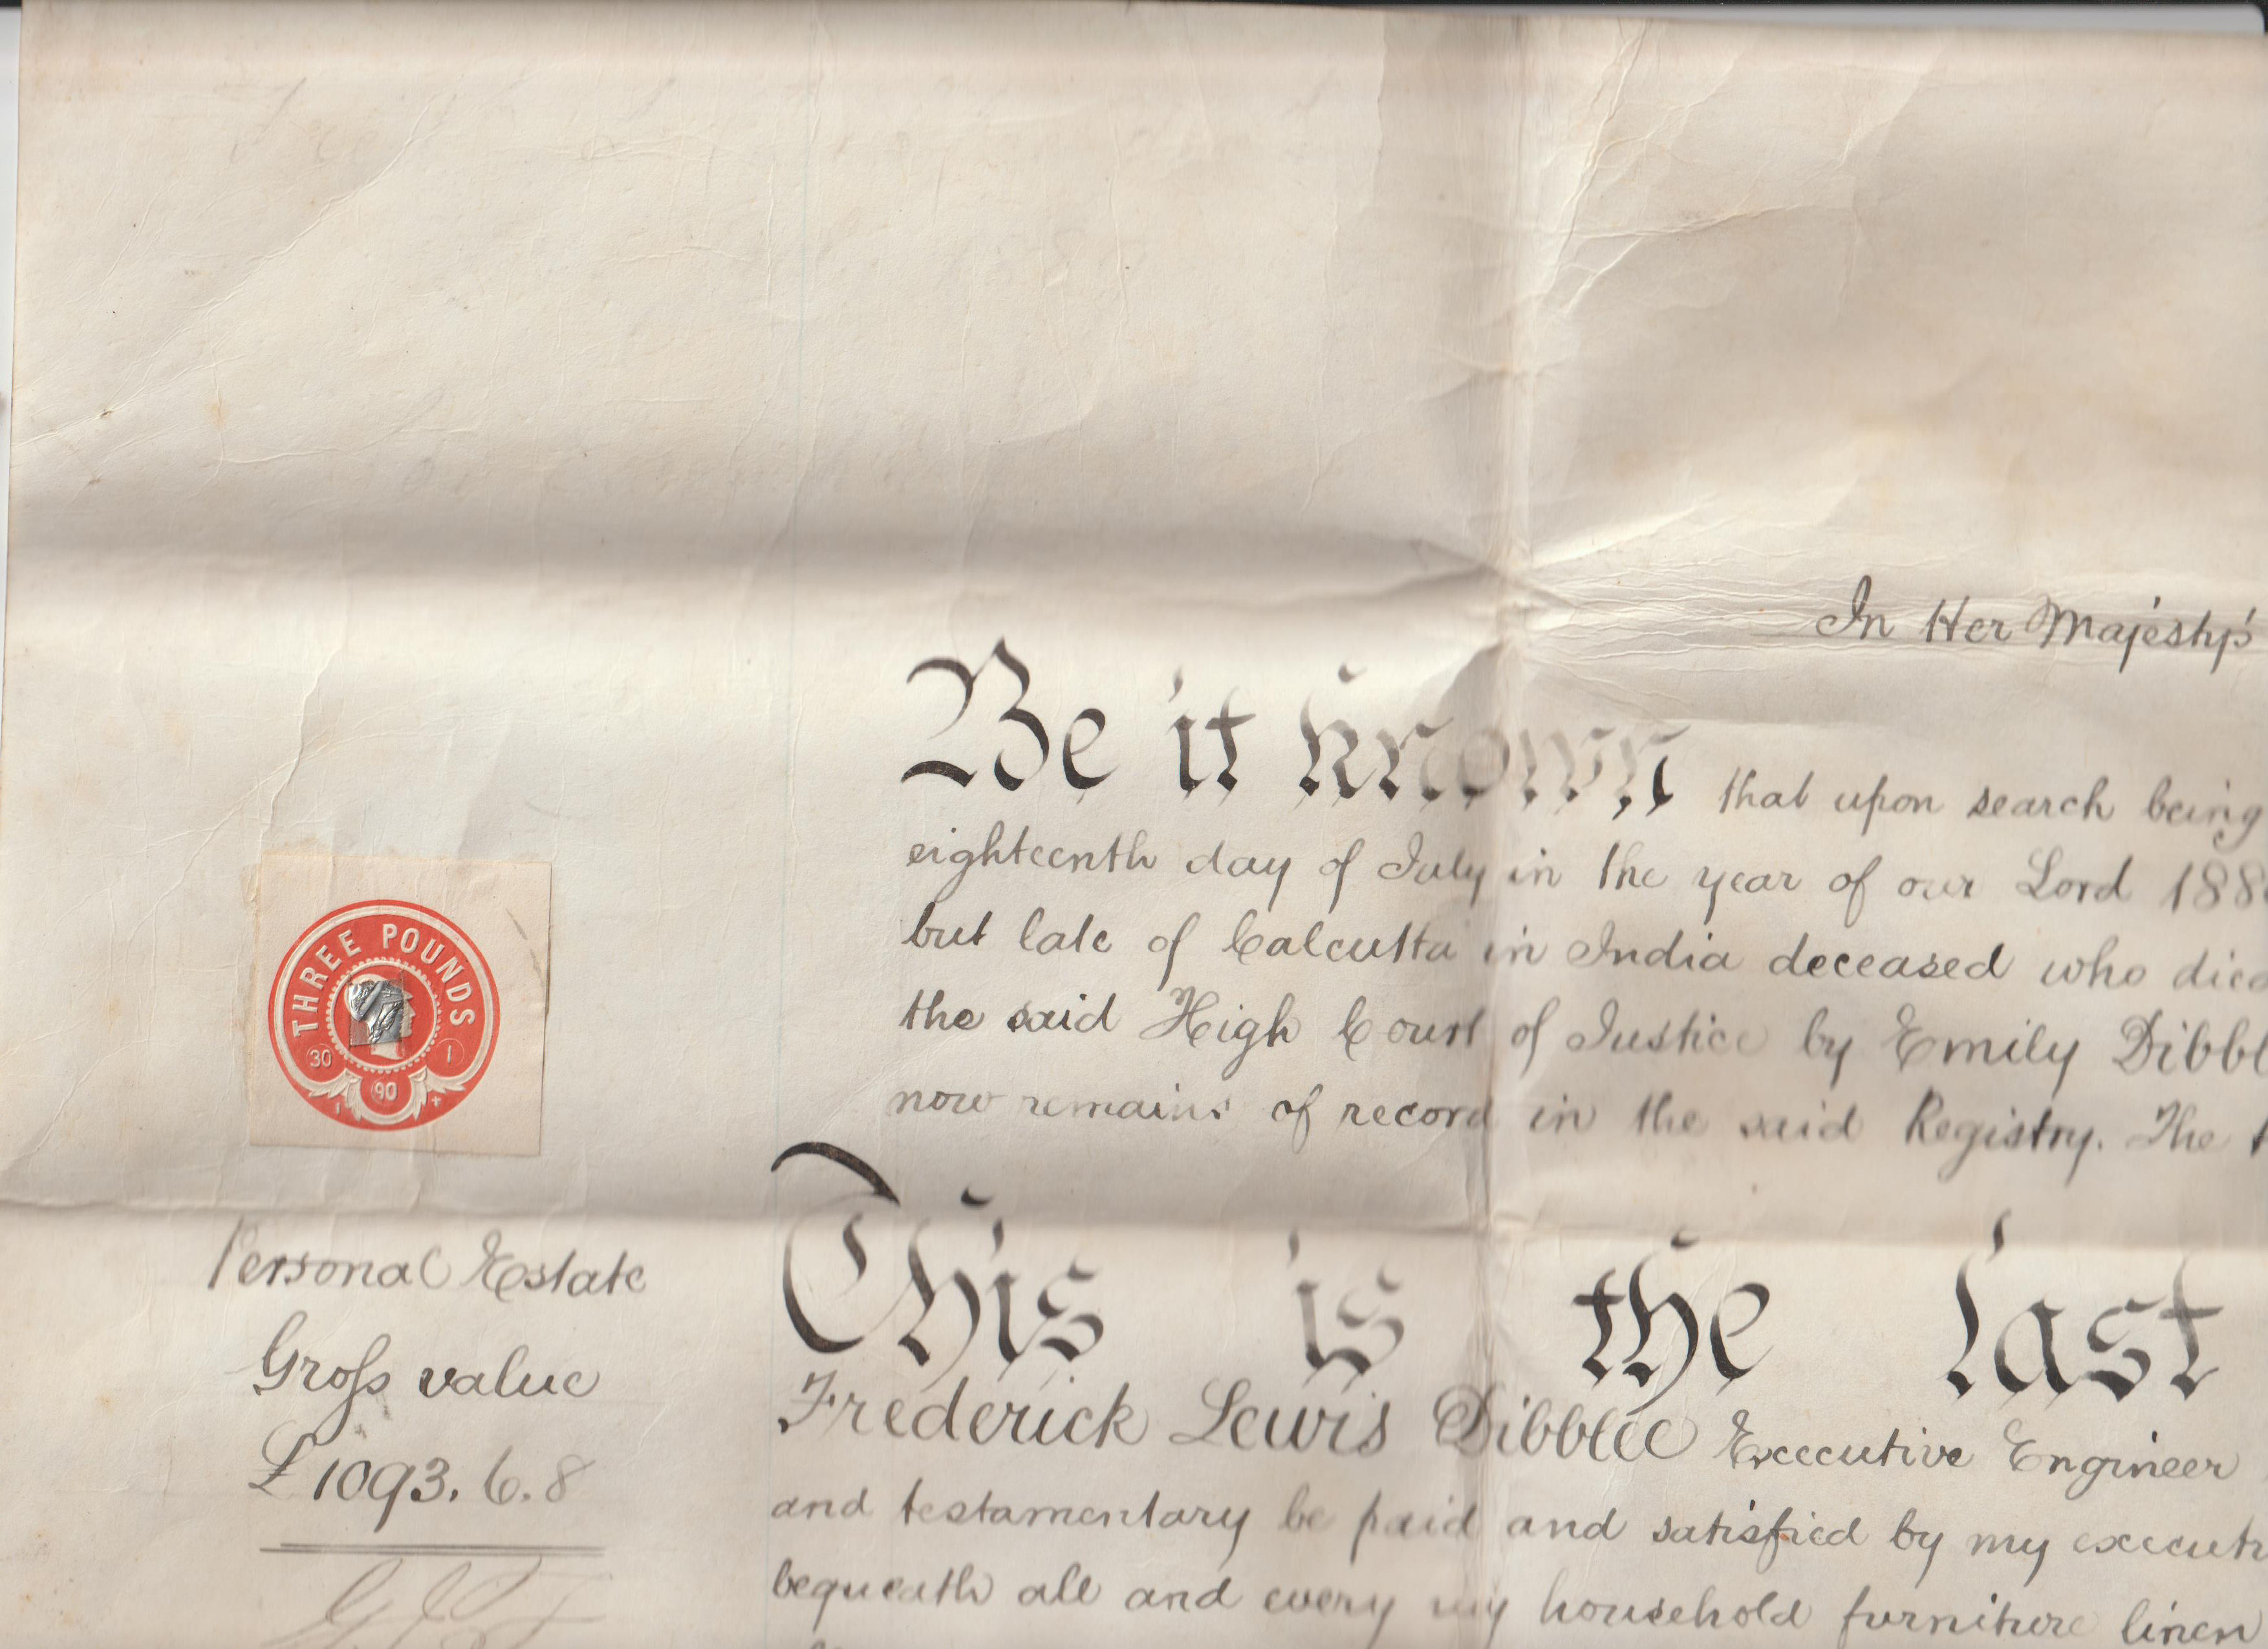 In Her Majesty's
Be it known that upon search being
eighteenth day of July in the year of our Lord 188
but late of Calcutta in India deceased who died
the said High Court of Justice by Emily Dibbl
now remains of record in the said Registry. The
THREE POUNDS
30 1
90
Personal Estate
Gross value
£1093. 6. 8
This is the last
Frederick Lewis Dibblee Executive Engineer
and testamentary be paid and satisfied by my execut
bequeath all and every my household furniture linen